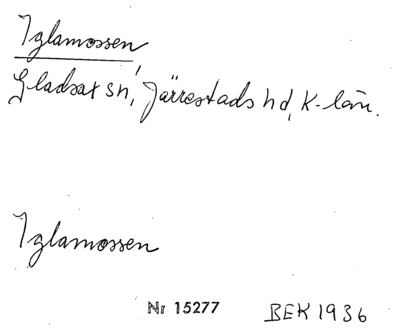 Iglamossen
Gladsax sn, Järrestads hd, K-län.
Iglamossen
Nr 15277 BEK 1936